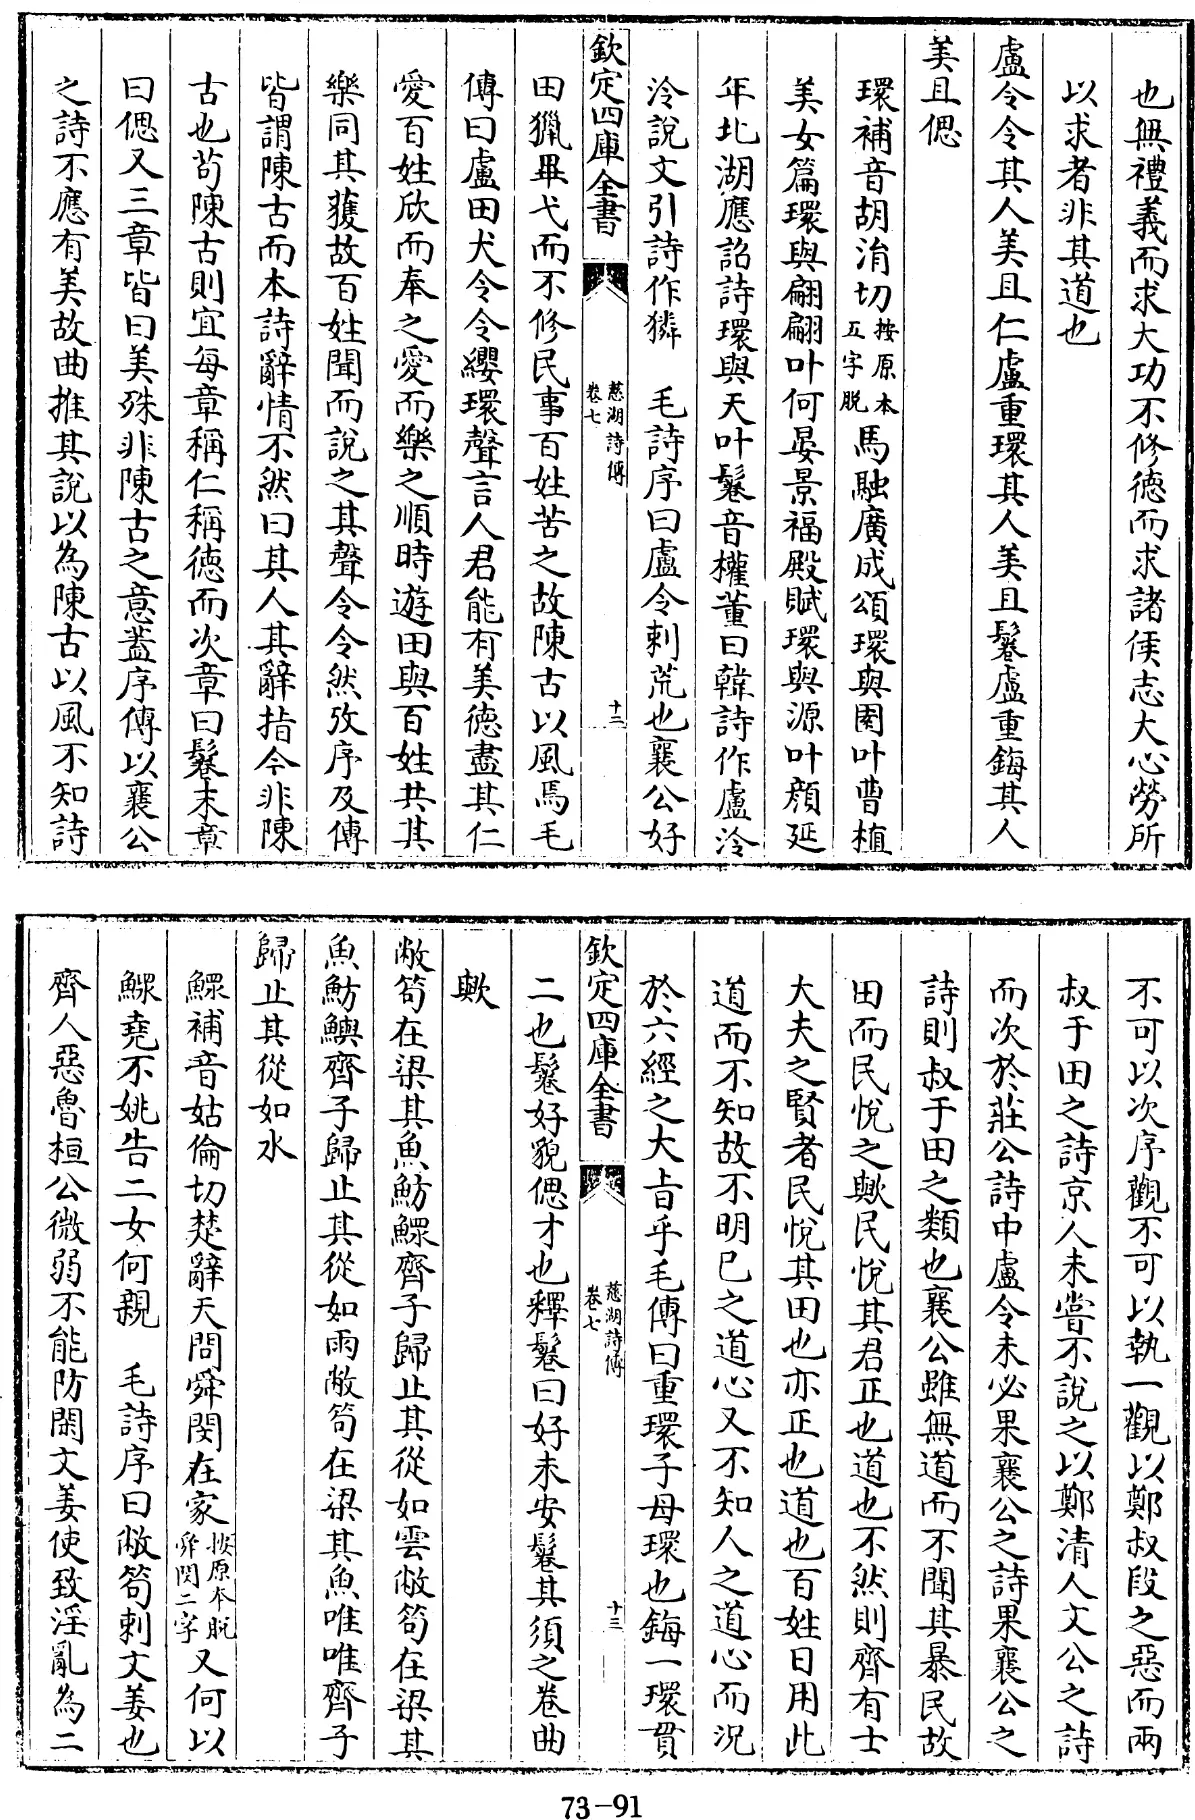 也無禮義而求大功不修德而求諸侯志大心勞所
以求者非其道也
盧令令其人美且仁盧重環其人美且鬈盧重鋂其人
美且偲
環補音胡涓切按原本五字脫馬融廣成頌環與圂叶曹植
美女篇環與翩翩叶何晏景福殿賦環與源叶顔延
年北湖應詔詩環與天叶鬈音權董曰韓詩作盧泠
泠說文引詩作獜　毛詩序曰盧令刺荒也襄公好
欽定四庫全書　慈湖詩傳卷七　十二
田獵畢弋而不修民事百姓苦之故陳古以風焉毛
傳曰盧田犬令令纓環聲言人君能有美德盡其仁
愛百姓欣而奉之愛而樂之順時遊田與百姓共其
樂同其獲故百姓聞而說之其聲令令然攷序及傳
皆謂陳古而本詩辭情不然曰其人其辭指今非陳
古也茍陳古則宜每章稱仁稱徳而次章曰鬈末章
曰偲又三章皆曰美殊非陳古之意葢序傳以襄公
之詩不應有美故曲推其說以為陳古以風不知詩
不可以次序觀不可以執一觀以鄭叔段之惡而兩
叔于田之詩京人未嘗不說之以鄭清人文公之詩
而次於莊公詩中盧令未必果襄公之詩果襄公之
詩則叔于田之類也襄公雖無道而不聞其暴民故
田而民悅之歟民悅其君正也道也不然則齊有士
大夫之賢者民悅其田也亦正也道也百姓日用此
道而不知故不明已之道心又不知人之道心而況
於六經之大㫖乎毛傳曰重環子母環也鋂一環貫
欽定四庫全書　慈湖詩傳卷七　十三
二也鬈好貌偲才也釋鬈曰好未安鬈其須之卷曲
歟
敝笱在梁其魚魴鰥齊子歸止其從如雲敝笱在梁其
魚魴鱮齊子歸止其從如雨敝笱在梁其魚唯唯齊子
歸止其從如水
鰥補音姑倫切楚辭天問舜閔在家按原本脫舜閔二字又何以
鰥堯不姚告二女何親　毛詩序曰敝笱刺文姜也
齊人惡魯桓公微弱不能防閑文姜使致淫亂為二
73-91